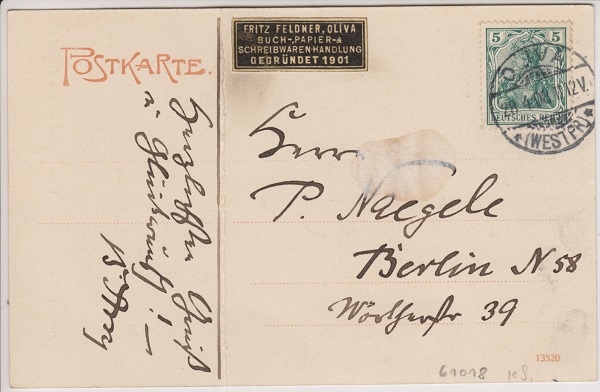 POSTKARTE.
FRITZ FELDNER, OLIVA
BUCH-, PAPIER- &
SCHREIBWAREN-HANDLUNG
GEGRÜNDET 1901
5 5
DEUTSCHES REICH
OLIVA
(WESTPR)
Herzlichsten Gruß
u. Glückwunsch! –
Herrn
P. Naegele
Berlin N 58
Wörtherstr 39
13520
61018